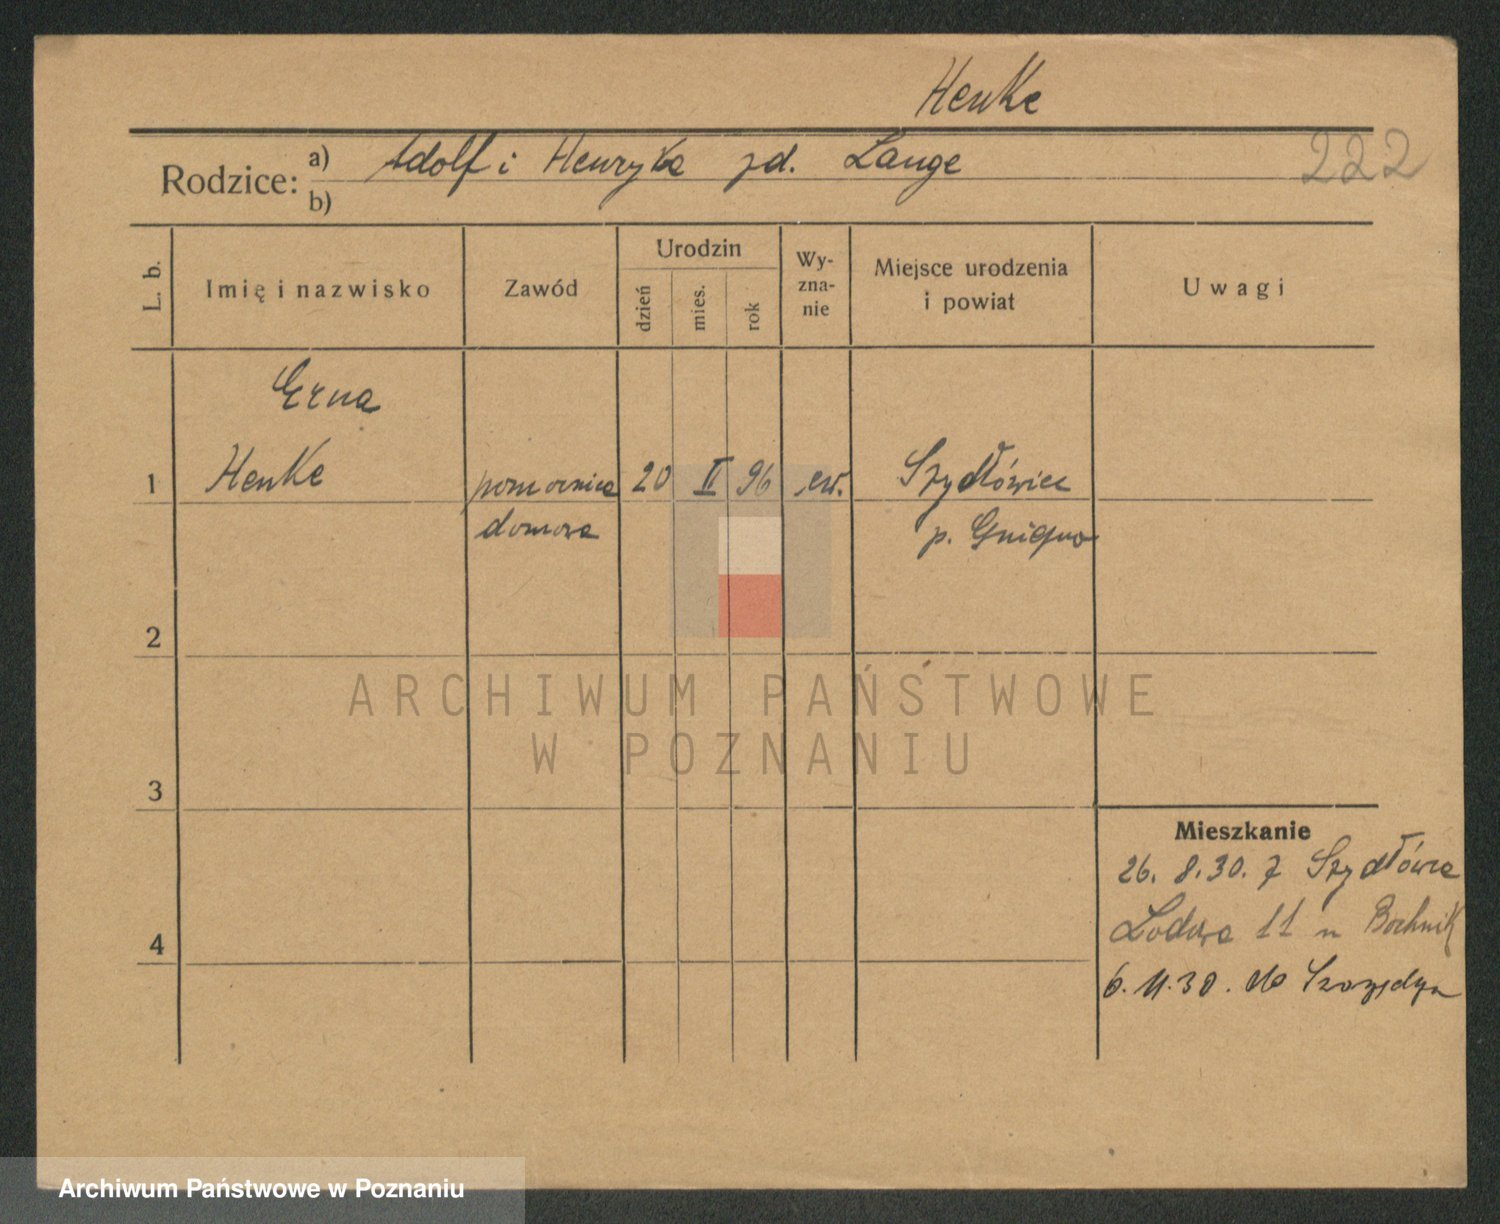 Henke
Rodzice: a) Adolf i Henryka zd. Lange
b)
222
L. b.
Imię i nazwisko
Zawód
Urodzin
dzień
mies.
rok
Wy-
zna-
nie
Miejsce urodzenia
i powiat
Uwagi
Erna
1 Henke pomocnica 20 II 96 ew. Szydłówiec
domowa p. Gniezno
2
3
4
Mieszkanie
26. 8. 30. z Szydłówca
Lodowa 11 u
6. 11. 30. do
ARCHIWUM PAŃSTWOWE
W POZNANIU
Archiwum Państwowe w Poznaniu